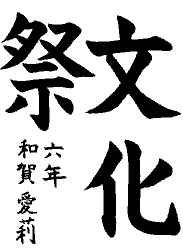 文化
祭
六年
和賀愛莉